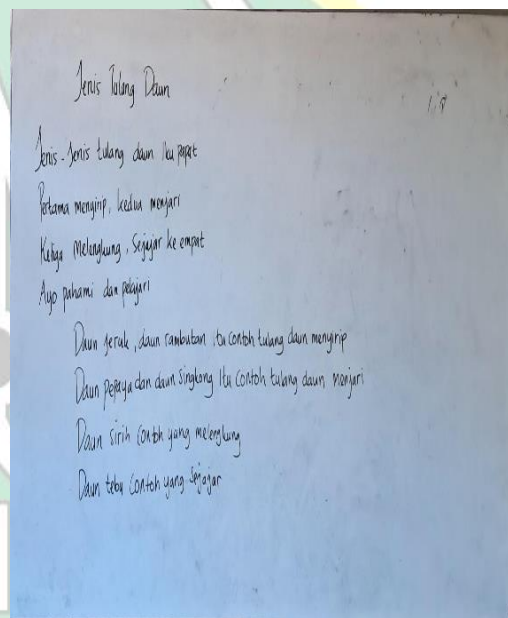 Jenis Tulang Daun
Jenis-Jenis tulang daun Iku papat
Pertama menyirip, kedua menjari
Ketiga Melengkung, Sejajar ke empat
Ayo pahami dan pelajari
Daun jeruk, daun rambutan itu contoh tulang daun menyirip
Daun pepaya dan daun Singkong Itu Contoh tulang daun menjari
Daun sirih Contoh yang melengkung
Daun tebu Contoh yang Sejajar